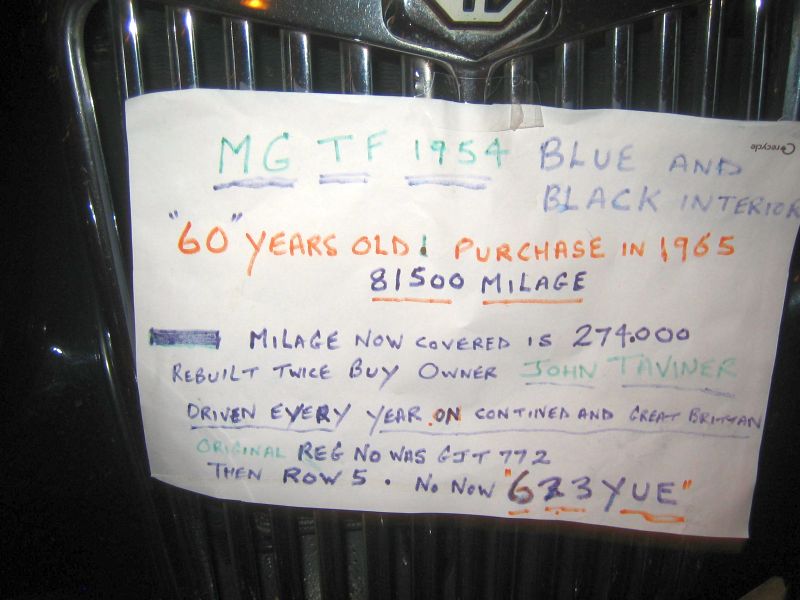 recycle
MG TF 1954 BLUE AND
BLACK INTERIOR
"60" YEARS OLD! PURCHASE IN 1965
81500 MILAGE
MILAGE NOW COVERED IS 274.000
REBUILT TWICE BUY OWNER JOHN TAVINER
DRIVEN EVERY YEAR .ON CONTINED AND GREAT BRITTAN
ORIGINAL REG NO WAS GJT 772
THEN ROW 5 . NO NOW "623 YUE"